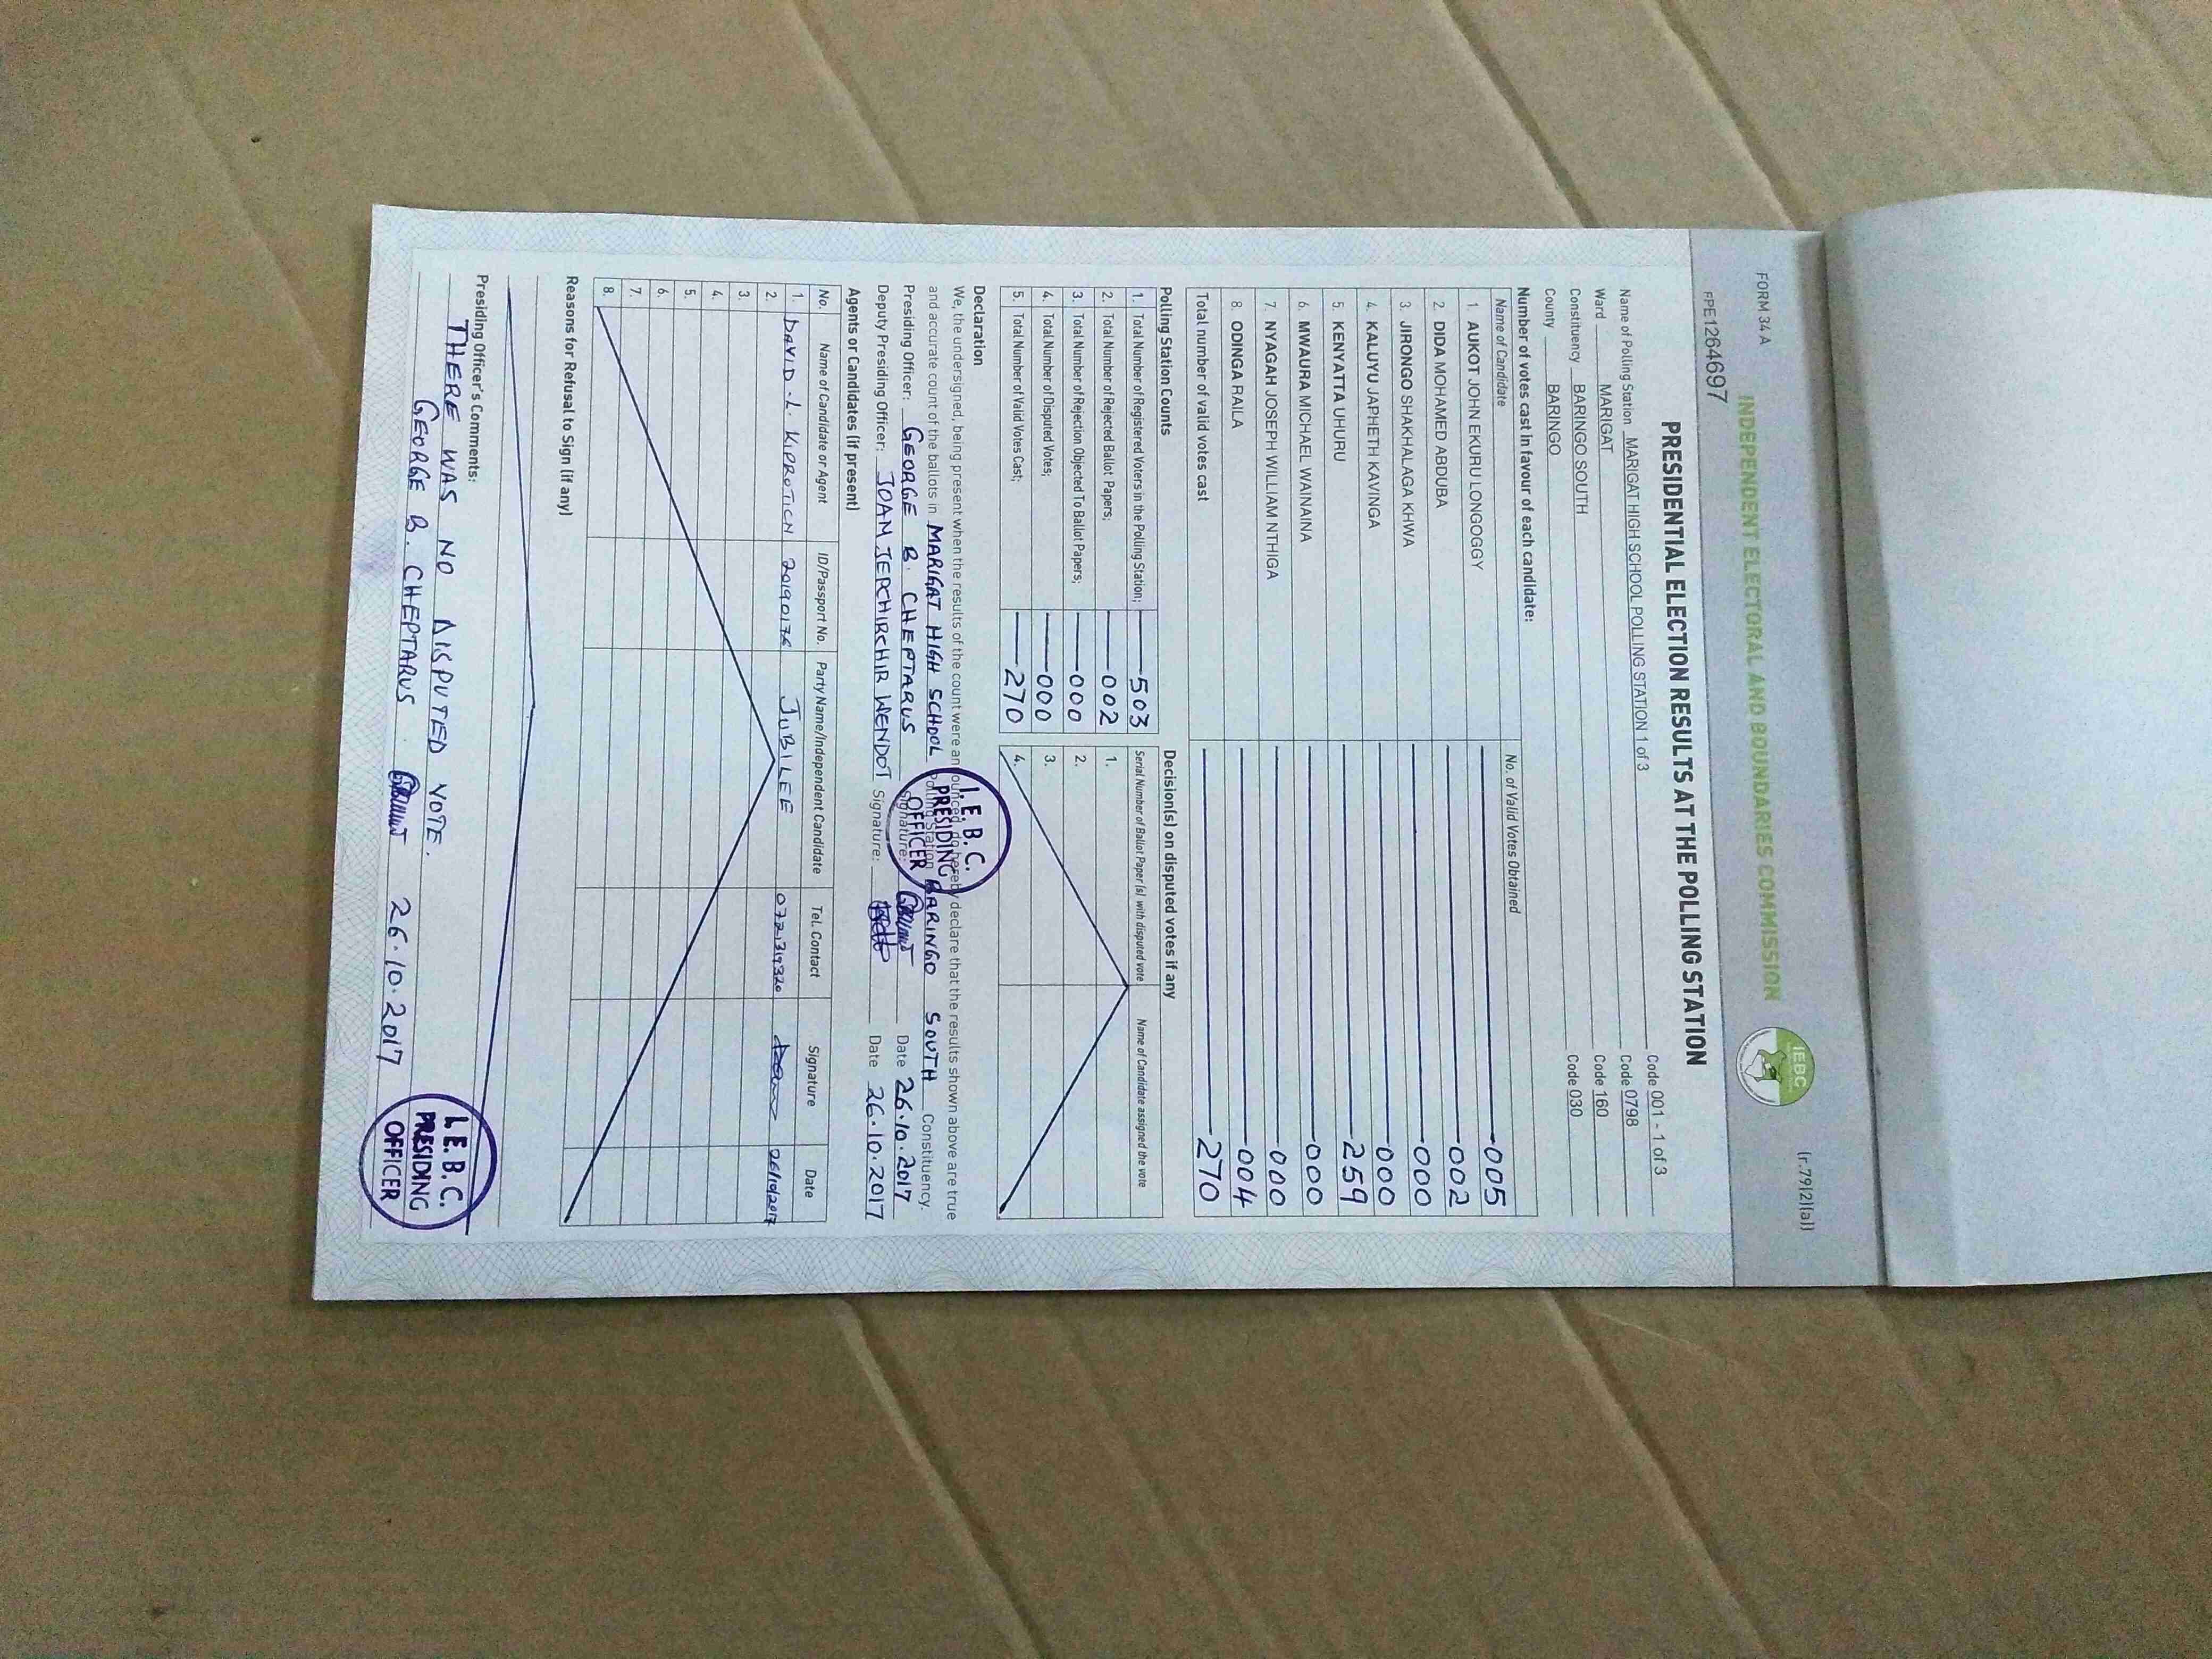 FORM 34 A
(r.79(2)(a))
INDEPENDENT ELECTORAL AND BOUNDARIES COMMISSION
IEBC
FPE1264697
PRESIDENTIAL ELECTION RESULTS AT THE POLLING STATION
Name of Polling Station MARIGAT HIGH SCHOOL POLLING STATION 1 of 3 Code 001 - 1 of 3
Ward MARIGAT Code 0798
Constituency BARINGO SOUTH Code 160
County BARINGO Code 030
Number of votes cast in favour of each candidate:
Name of Candidate No. of Valid Votes Obtained
1 AUKOT JOHN EKURU LONGOGGY 005
2. DIDA MOHAMED ABDUBA 002
3. JIRONGO SHAKHALAGA KHWA 000
4. KALUYU JAPHETH KAVINGA 000
5. KENYATTA UHURU 259
6. MWAURA MICHAEL WAINAINA 000
7. NYAGAH JOSEPH WILLIAM NTHIGA 000
8. ODINGA RAILA 004
Total number of valid votes cast 270
Polling Station Counts
1. Total Number of Registered Voters in the Polling Station; 503
2. Total Number of Rejected Ballot Papers; 002
3. Total Number of Rejection Objected To Ballot Papers; 000
4. Total Number of Disputed Votes; 000
5. Total Number of Valid Votes Cast; 270
Decision(s) on disputed votes if any
Serial Number of Ballot Paper (s) with disputed vote Name of Candidate assigned the vote
1.
2.
3.
4.
Declaration
We, the undersigned, being present when the results of the count were announced, do hereby declare that the results shown above are true
and accurate count of the ballots in MARIGAT HIGH SCHOOL Polling Station BARINGO SOUTH Constituency.
Presiding Officer: GEORGE B. CHEPTARUS Signature: Date 26.10.2017
Deputy Presiding Officer: JOAN JEPCHIRCHIR WENDOT Signature: Date 26.10.2017
I.E.B.C.
PRESIDING
OFFICER
Agents or Candidates (if present)
No. Name of Candidate or Agent ID/Passport No. Party Name/Independent Candidate Tel. Contact Signature Date
1. DAVID .L. KIPROTICH 20190176 JUBILEE 0721319320 26/10/2017
2.
3.
4.
5.
6.
7.
8.
Reasons for Refusal to Sign (if any)
Presiding Officer's Comments:
THERE WAS NO DISPUTED VOTE.
GEORGE B. CHEPTARUS. 26.10.2017
I.E.B.C.
PRESIDING
OFFICER